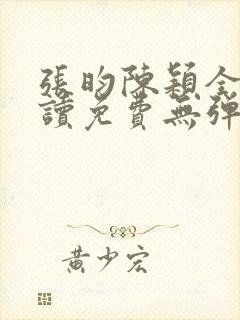 張昀陳穎全
讀免費無彈
黃少宏